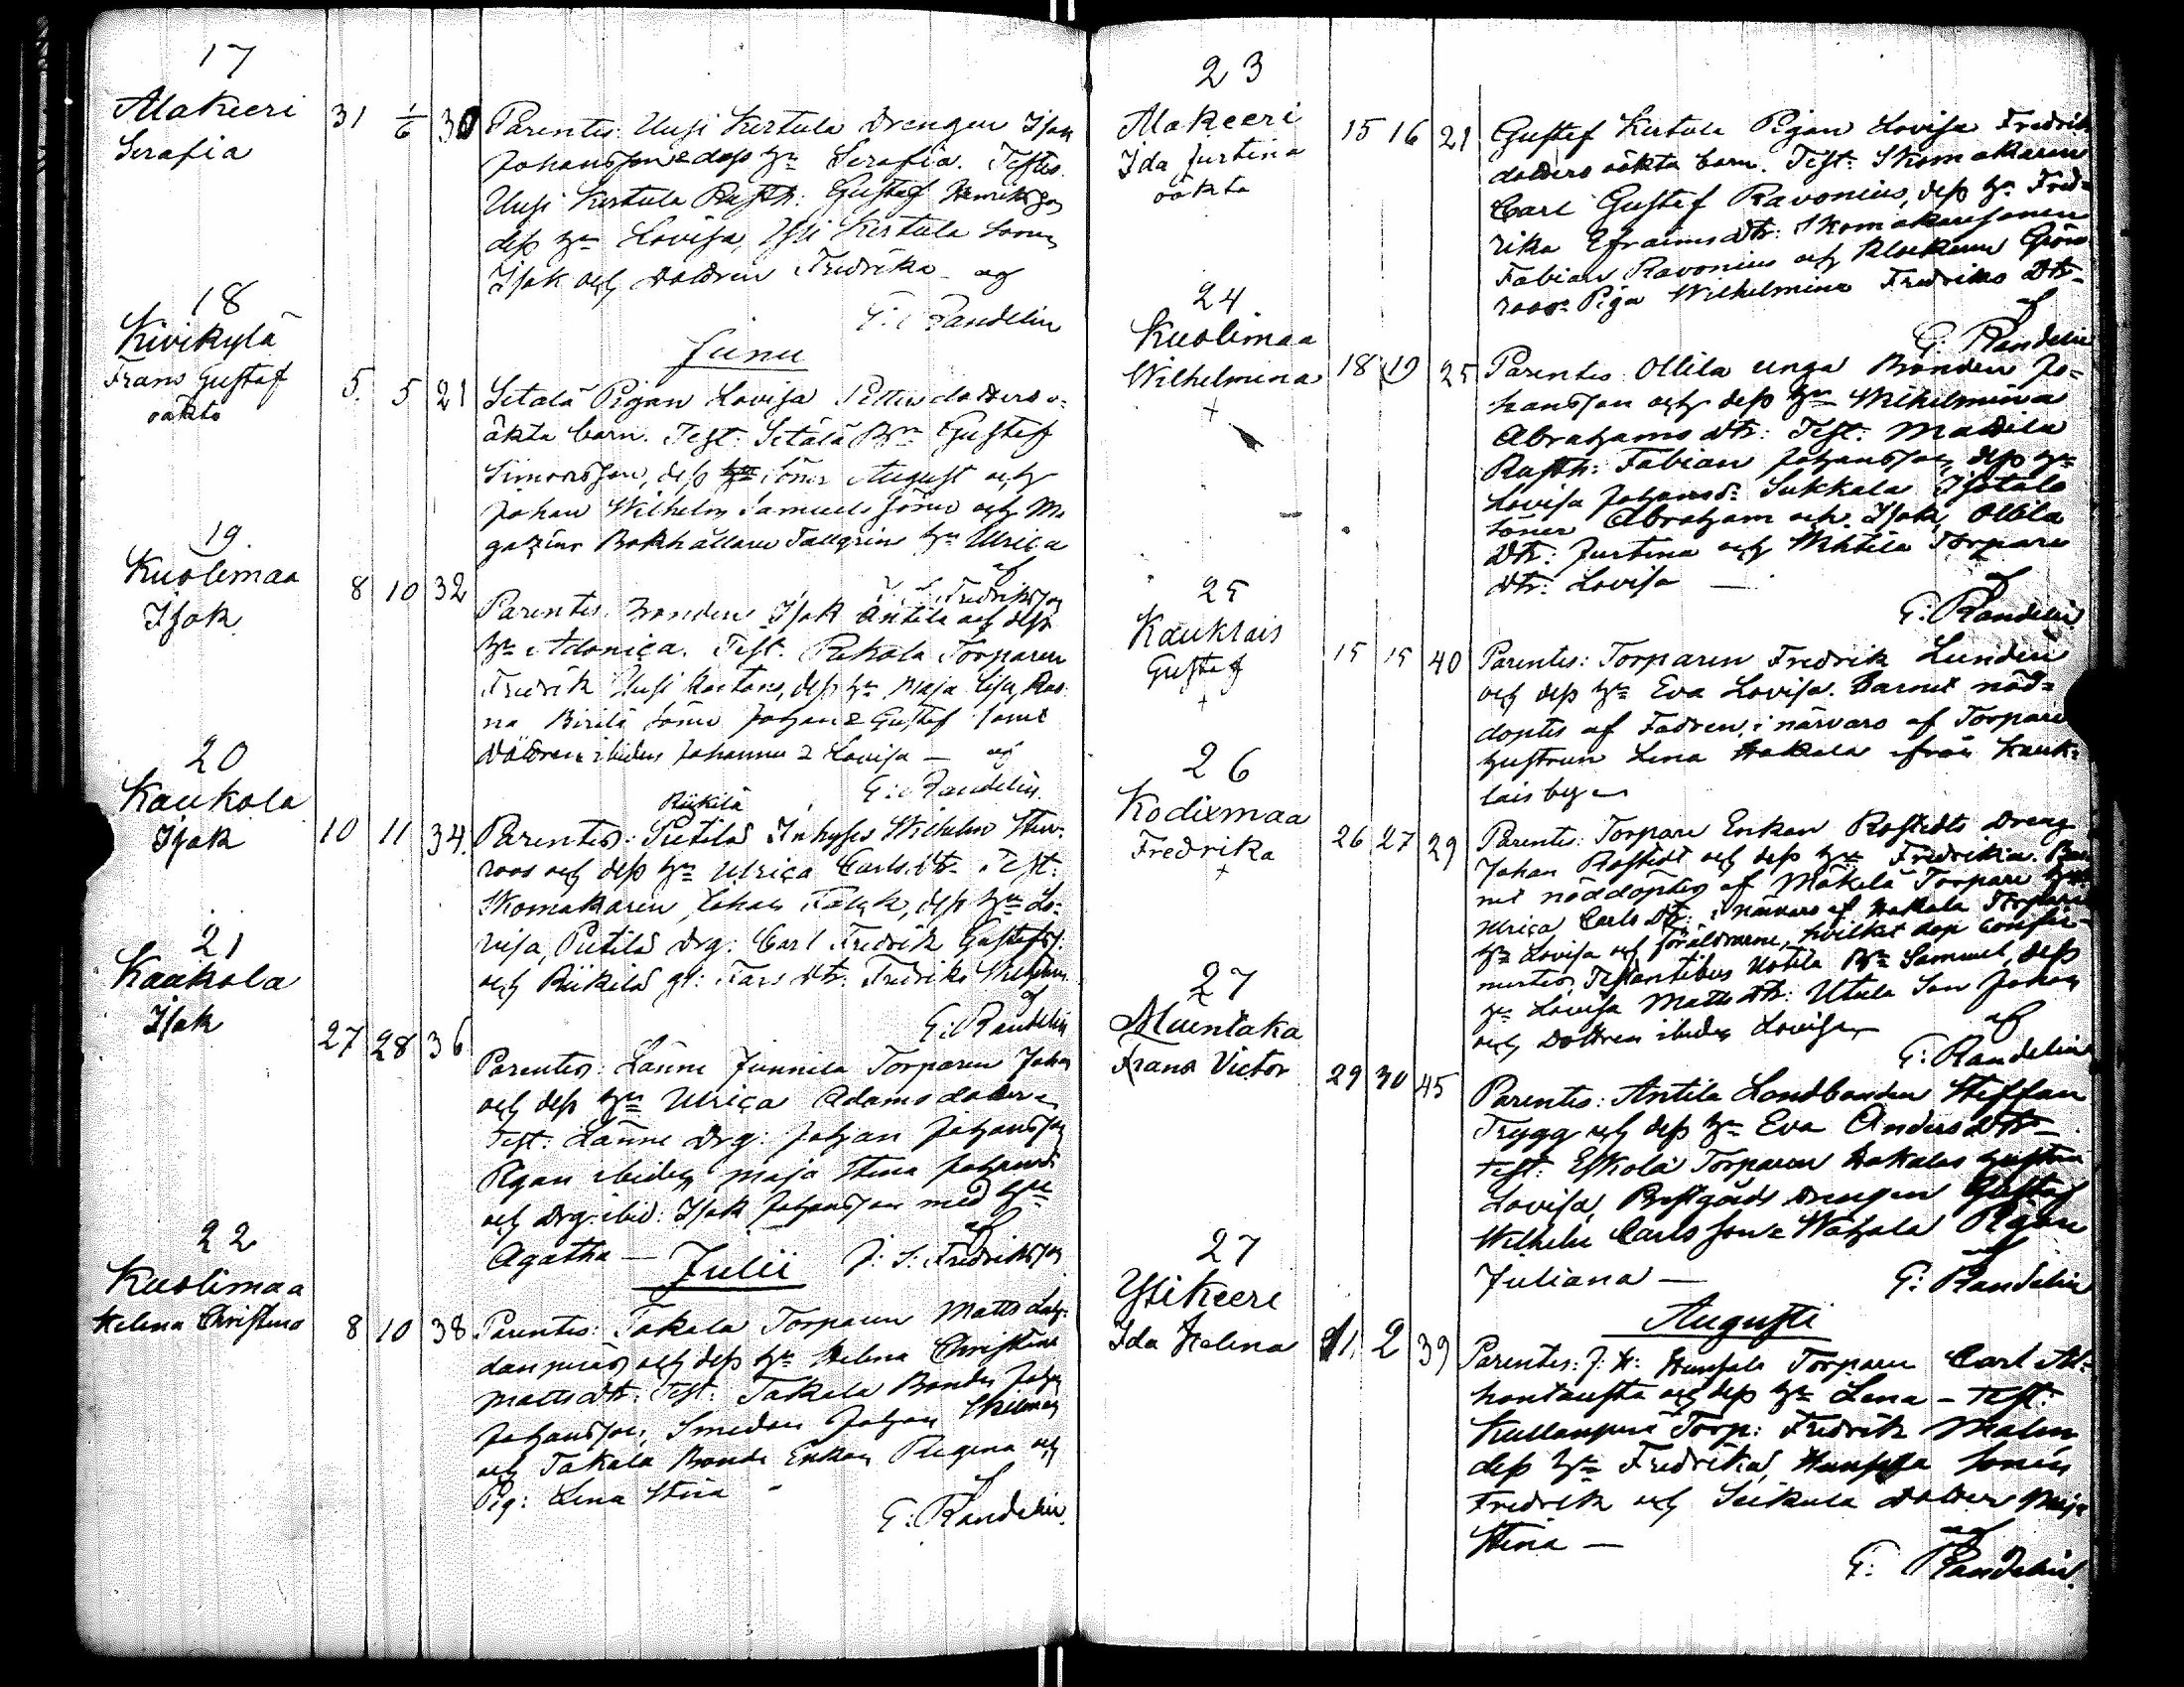 17
Alakeeri
Serafia
31 1/6 30
Parentes: Uusi Kertula Drengen Isak
Johansson & dess hu Serafia. Testes
Uusi Kertula Rusth: Gustaf Henriksson
dess hu Lovisa, Isti Kertula Sonen
Isak och Dottren Fredrika af
G: Randelin
18
Kivikylä
Frans Gustaf
oäkta
Junii
5 5 21
Setälä Pigan Lovisa Petters dotters o-
äkta barn. Test: Setälä Bn Gustaf
Simonsson, dess Söner August och
Johan Wilhelm Samuels Söner och Ma
gazins Bokhållaren Tallgrins hu Ulrica
af
Fredriksson
19.
Kuolimaa
Isak
8 10 32
Parentes. Bonden Isak Antila och dess
hu Adonica. Test. Pukala Torparen
Fredrik Uusi Kartano, dess hu Maja Lisa,
Birilä Söner Johan & Gustaf samt
Döttren ibidem Johanna & Lovisa — af
G: Randelin.
20
Kaukola
Isak
10 11 34
Riikilä
Parentes: Putilas Inhyses Wilhelm Sten-
roos och dess hu Ulrica Carls dtr. Test:
Skomakaren Johan Falck, dess hu Lo-
visa, Putilas Drg: Carl Fredrik Gustafss:
och Riikilas gl: Fars Dtr: Fredrika Wilhelm
af
G: Randelin
21
Kaukola
Isak
27 28 36
Parentes: Länne Junnila Torparen Johan
och dess hu Ulrica Adams dotter
Test: Länne Drg: Johan Johansson
Pigan ibidem Maja Stina Johans
och Drg: ibid: Isak Johansson med hu
Agatha — af
J: S: Fredriksson
22
Kuolimaa
Helena Christina
Julii
8 10 38
Parentes: Takala Torparen Matts
och dess hu Helena Christina
Matts dtr: Test: Takala Bonden Johan
Johansson, Smeden Johan
och Takala Bonde Enkan Regina och
Pig: Lena Stina
af
G: Randelin.
23
Alakeeri
Ida Justina
oäkta
15 16 21
Gustaf Kertula Pigan Lovisa Fredrik
dotters oäkta barn. Test: Skomakaren
Carl Gustaf Ravonius, dess hu Fred-
rika Efraims dtr: Skomakaresonen
Fabian Ravonius och Klockaren Grön
roos Piga Wilhelmina Fredriks Dtr
af
G: Randelin
24
Kuolimaa
Wilhelmina
+
18 19 25
Parentes Ollila unga Bonden Jo-
hansson och dess hu Wilhelmina
Abrahams dtr: Test: Mattila
Rusth: Fabian Johansson, dess hu
Lovisa Johans d: Sukkala Isotalo
Söner Abraham och Isak, Ollila
Dtr: Justina och Torpare
dtr: Lovisa —
af
G: Randelin
25
Kauklais
Gustaf
+
15 15 40
Parentes: Torparen Fredrik Lundin
och dess hu Eva Lovisa. Barnet nöd-
döptes af Fadren, i närvaro af Torpare
hustrun Lena Hakala ifrån Kauk-
lais by
26
Kodixmaa
Fredrika
+
26 27 29
Parentes: Torpare Enkan Rostedts Dreng
Johan Rostedt och dess hu Fredrika. Bar
net nöddöptes af Mäkelä Torpare hu
Ulrica Carls Dtr: i närvaro af Hakala Torpare
hu Lovisa och föräldrarne, hvilket dop confir-
merades, Testantibus Uotila Bn Samuel, dess
hu Lovisa Matts Dtr: Utula Son Johan
och Dottren ibidem Lovisa
af
G: Randelin
27
Muntaka
Frans Victor
29 30 45
Parentes: Antila Landbonden Steffan
Trygg och dess hu Eva Anders Dtr —
Test: Eskola Torparen Hakalas hustru
Lovisa, Prestgårds Drengen Gustaf
Wilhelm Carlsson & Wähälä Pigan
Juliana —
af
G: Randelin
27
Ylikeeri
Ida Helena
Augusti
1 2 39
Parentes: J: H: Torparen Carl Al-
hontausta och dess hu Lena — Test:
Kullanperä Torp: Fredrik Malm
dess hu Fredrika, Sonen
Fredrik och Seikula Dotter Maja
Stina —
af
G: Randelin.